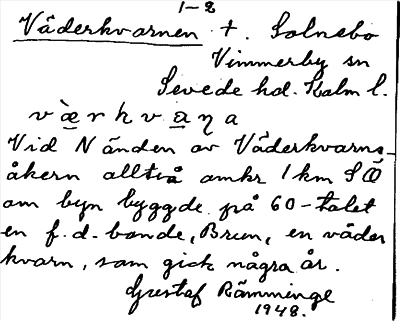 1-2
Väderkvarnen +. Solnebo
Vimmerby sn
Sevede hd. Kalm l.
væ̀rkvana
Vid N änden av Väderkvarns-
åkern alltså omkr 1 km SÖ
om byn byggde på 60-talet
en f.d. bonde, Brun, en väder
kvarn, som gick några år.
Gustaf Rämminge
1948.